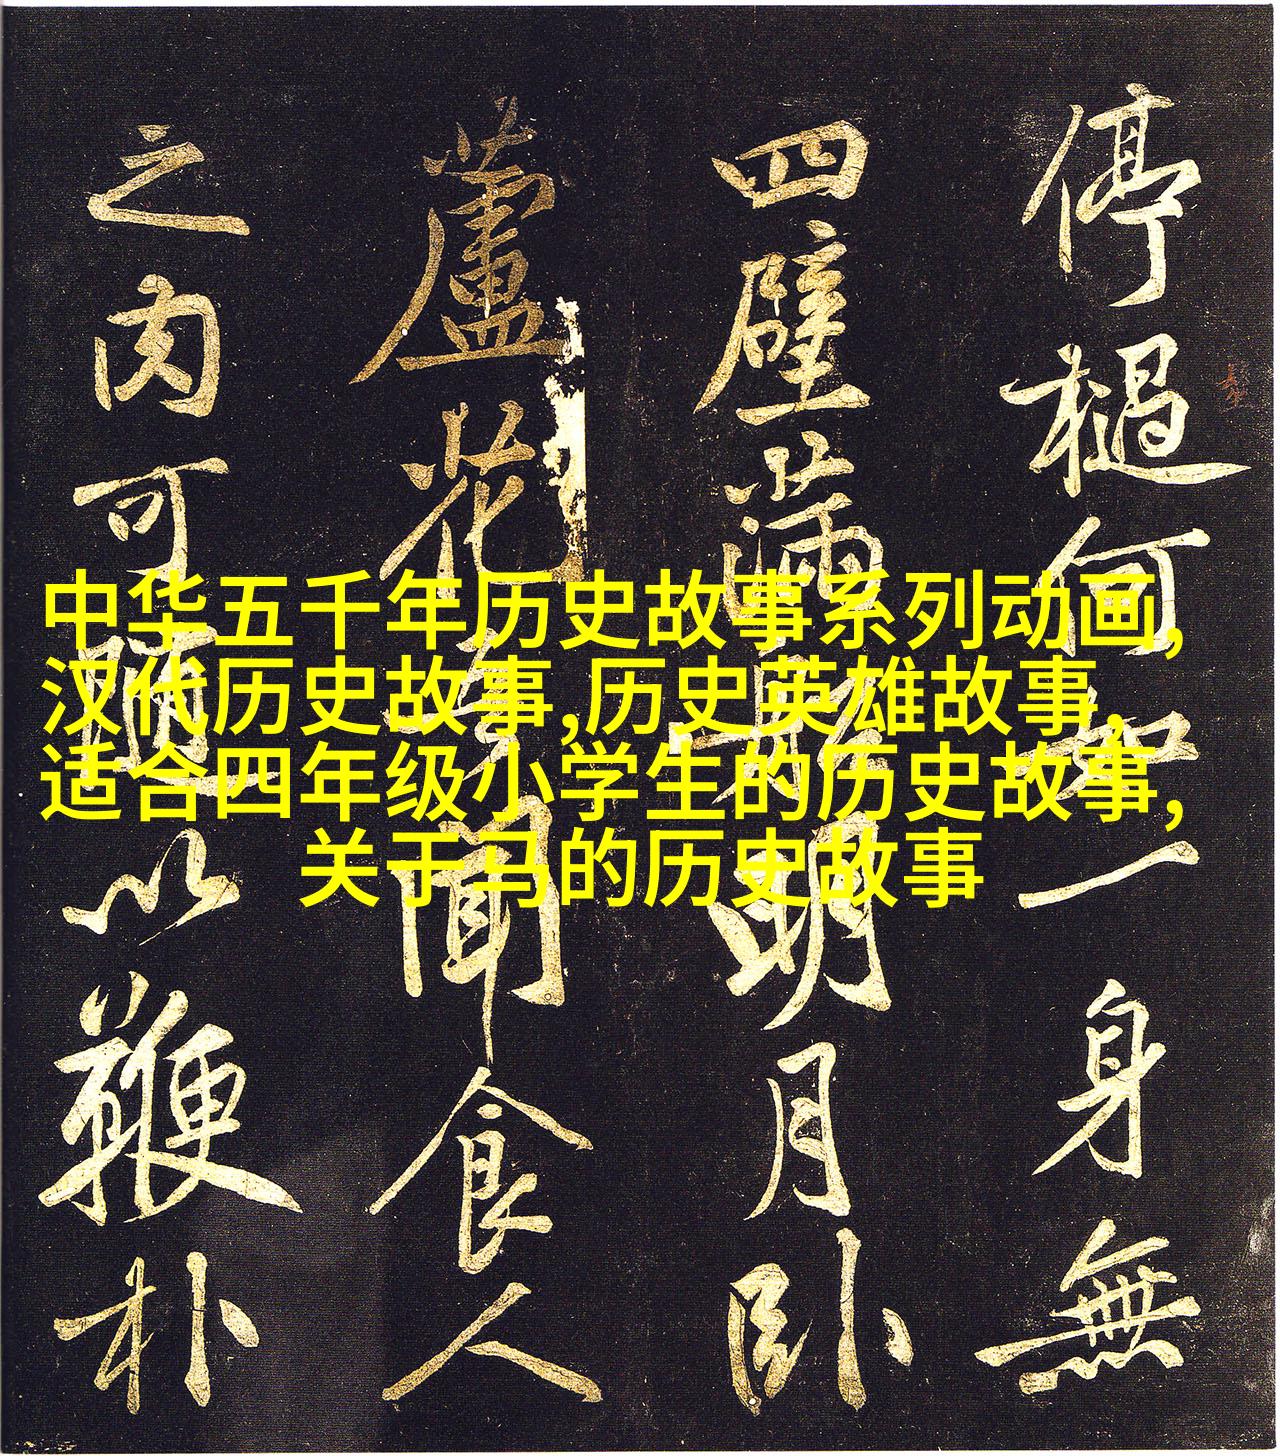 中华五千年历史故事系列动画,
汉代历史故事,历史英雄故事,
适合四年级小学生的历史故事,
关于马的历史故事
停何如一身無
四壁滿船明月卧
蘆花吾聞食人
之肉可隨以鞭朴